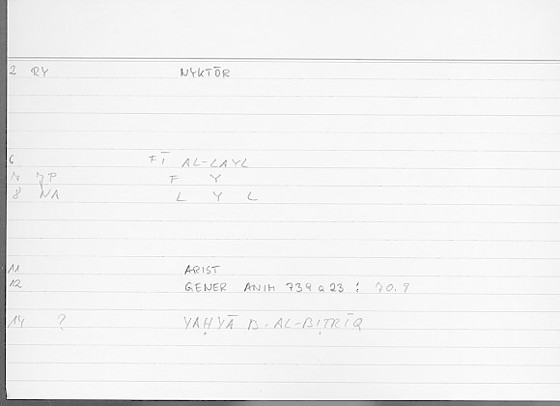 2 RY NYKTŌR
6 FĪ AL-LAYL
7 JP F Y
8 NA L Y L
11 ARIST
12 GENER ANIM 739 a 23 : 70.9
14 ? YAḤYĀ B. AL-BIṬRĪQ